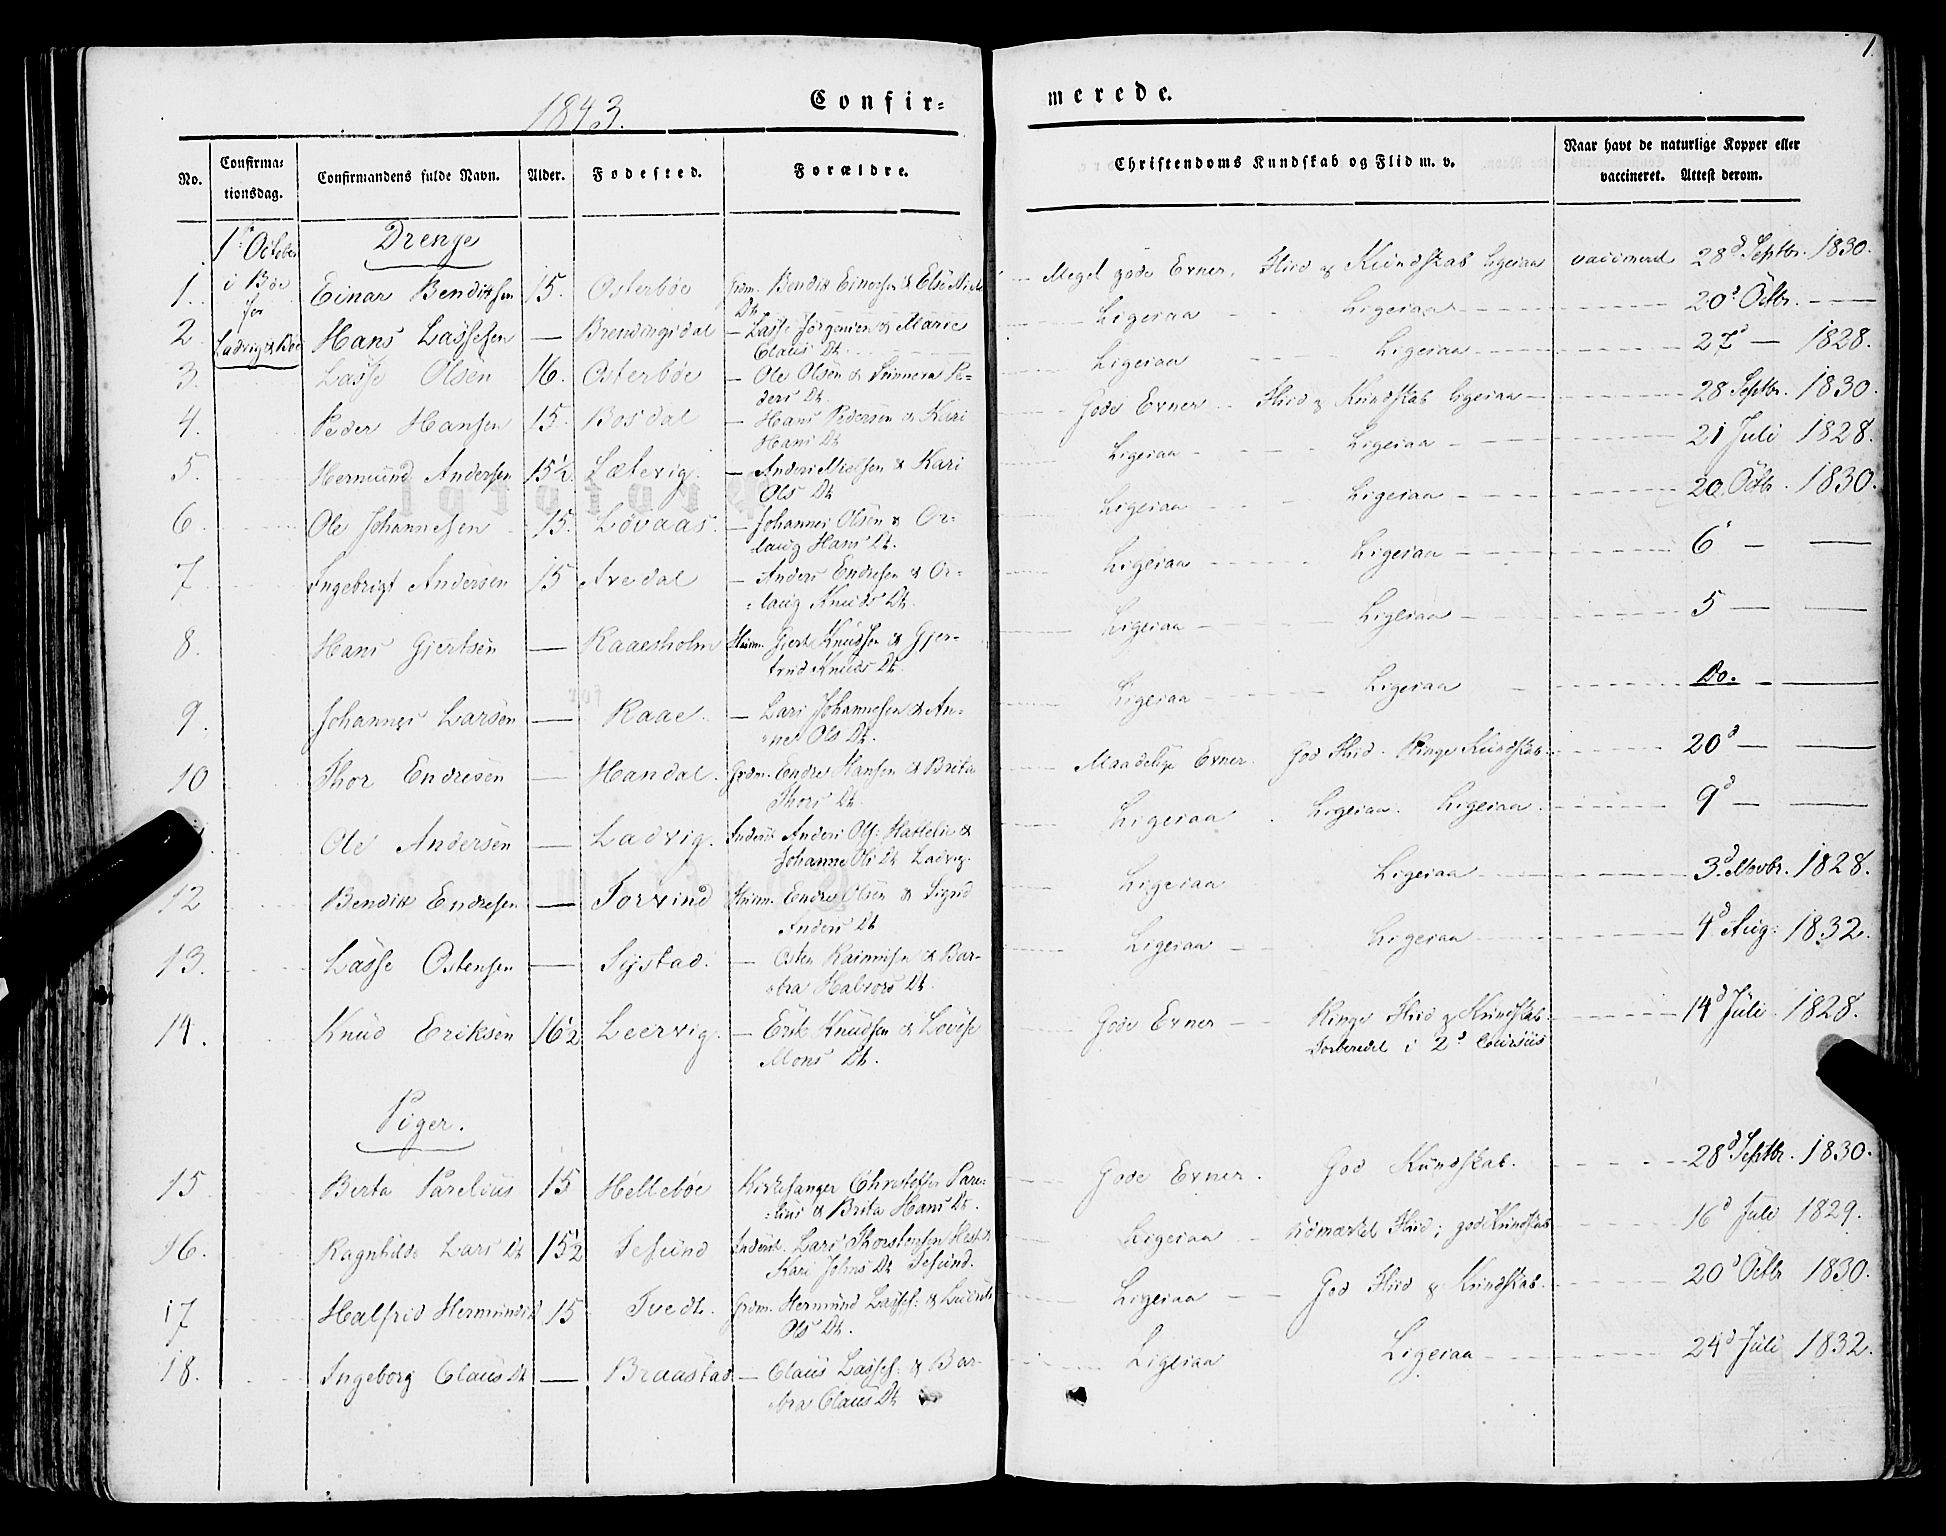 1.
1843.
Confir- merede.
No. Confirmationsdag. Confirmandens fulde Navn. Alder. Fødested. Forældre. Christendoms Kundskab og Flid m. v. Naar havt de naturlige Kopper eller vaccineret. Attest derom.
1ste October i Bøe for Ladvig & Bøe
Drenge
1. Einar Bendixsen 15. Osterbøe Grdm. Bendix Einersen & Else Dt. Meget gode Evner. Flid & Kundskab ligesaa vaccinerd 28d Septbr. 1830.
2. Hans Lassesen — Brendingsdal — Lasse Jørgensen & Marie Claus Dt. Ligesaa Ligesaa 20d Octbr. —
3. Lasse Olsen 16. Osterbøe — Ole Olsen & Sunneva Peders Dt. Ligesaa Ligesaa 27d — 1828.
4. Peder Hansen 15. Bosdal — Hans Pedersen & Kari Hans Dt. Gode Evner Flid & Kundskab ligesaa 28 Septbr. 1830.
5. Hermund Andersen 15½ Lætevig. — Anders Nielsen & Kari Ols Dt. Ligesaa Ligesaa 21 Juli 1828.
6. Ole Johannesen 15. Løvaas. — Johannes Olsen & Orlaug Hans Dt. Ligesaa Ligesaa 20 Octbr. 1830.
7. Ingebrigt Andersen 15 Avedal — Anders Endresen & Orlaug Knuds Dt. Ligesaa Ligesaa 6 — —
8. Hans Gjertsen — Raaesholm Huusm. Gjert Knudsen & Gjertrud Knuds Dt. Ligesaa Ligesaa 5 — —
9. Johannes Larsen — Raae. — Lars Johannesen & Anne Ols Dt. Ligesaa Ligesaa Do. —
10 Thor Endresen — Handal. Grdm. Endre Hansen & Brita Thors Dt. Maadelige Evner. God Flid. Ringe Kundskab 20d — —
Ole Andersen — Ladvig. Anders Ols: Hattelie & Johanne Ols Dt Ladvig. Ligesaa Ligesaa. Ligesaa. 9d — —
12 Bendix Endresen — Torvind Huusm. Endre Olsen & Sigrid Anders Dt Ligesaa Ligesaa 3d Novbr. 1828.
13. Lasse Ostensen — Systad. — Osten Rasmusen & Barbra Halvors Dt. Ligesaa Ligesaa 4d Aug: 1832.
14. Knud Eriksen 16½ Leervig. — Erik Knudsen & Lovise Mons Dt. Gode Evner Ringe Flid & Kundskab. Forberedet i 2d Cursus 14d Juli 1828.
Piger.
15 Berta Parelius 15 Hellebøe Kirkesanger Christoffer Parelius & Brita Hans Dt. Gode Evner. God Kundskab. 28d Septbr. 1830.
16. Ragnhilde Lars Dt 15½ Tesund Lars Thorstensen & Kari Johns Dt Tesund. Ligesaa Udmærket Flid; god Kundskab 16d Juli 1829.
17 Halfrid Hermunds Dt 15 Tvedt. Grdm. Hermund Lasses: & Ols Dt. Ligesaa God Flid & Kundskab. 20d Octbr 1830.
18. Ingeborg Claus Dt — Braastad — Claus Lasses: & Barbra Claus Dt Ligesaa Ligesaa 24d Juli 1832.